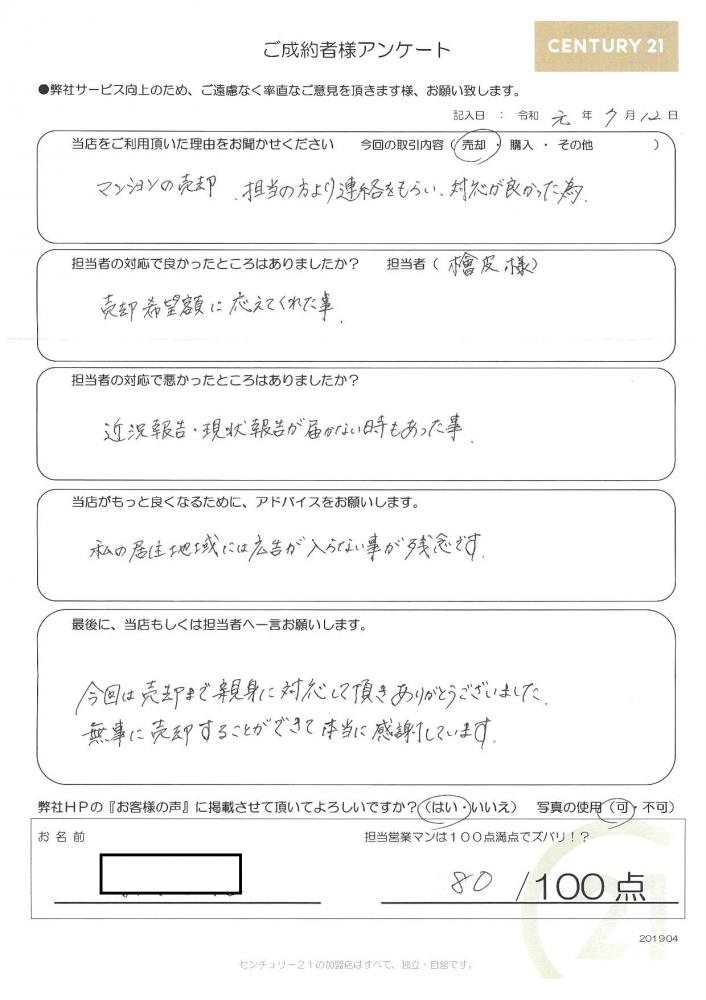 ご成約者様アンケート
CENTURY 21
●弊社サービス向上のため、ご遠慮なく率直なご意見を頂きます様、お願い致します。
記入日 : 令和 元 年 7 月 12 日
当店をご利用頂いた理由をお聞かせください 今回の取引内容 ( 売却 ・ 購入 ・ その他 )
マンションの売却、担当の方より連絡をもらい、対応が良かった為.
担当者の対応で良かったところはありましたか? 担当者 ( 檜皮様 )
売却希望額に応えてくれた事.
担当者の対応で悪かったところはありましたか?
近況報告・現状報告が届かない時もあった事.
当店がもっと良くなるために、アドバイスをお願いします。
私の居住地域には広告が入らない事が残念です.
最後に、当店もしくは担当者へ一言お願いします。
今回は売却まで親身に対応して頂きありがとうございました.
無事に売却することができて本当に感謝しています.
弊社HPの『お客様の声』に掲載させて頂いてよろしいですか? (はい・いいえ) 写真の使用 (可・不可)
お名前
担当営業マンは100点満点でズバリ!?
80 /100点
21
201904
センチュリー21の加盟店はすべて、独立・自営です。